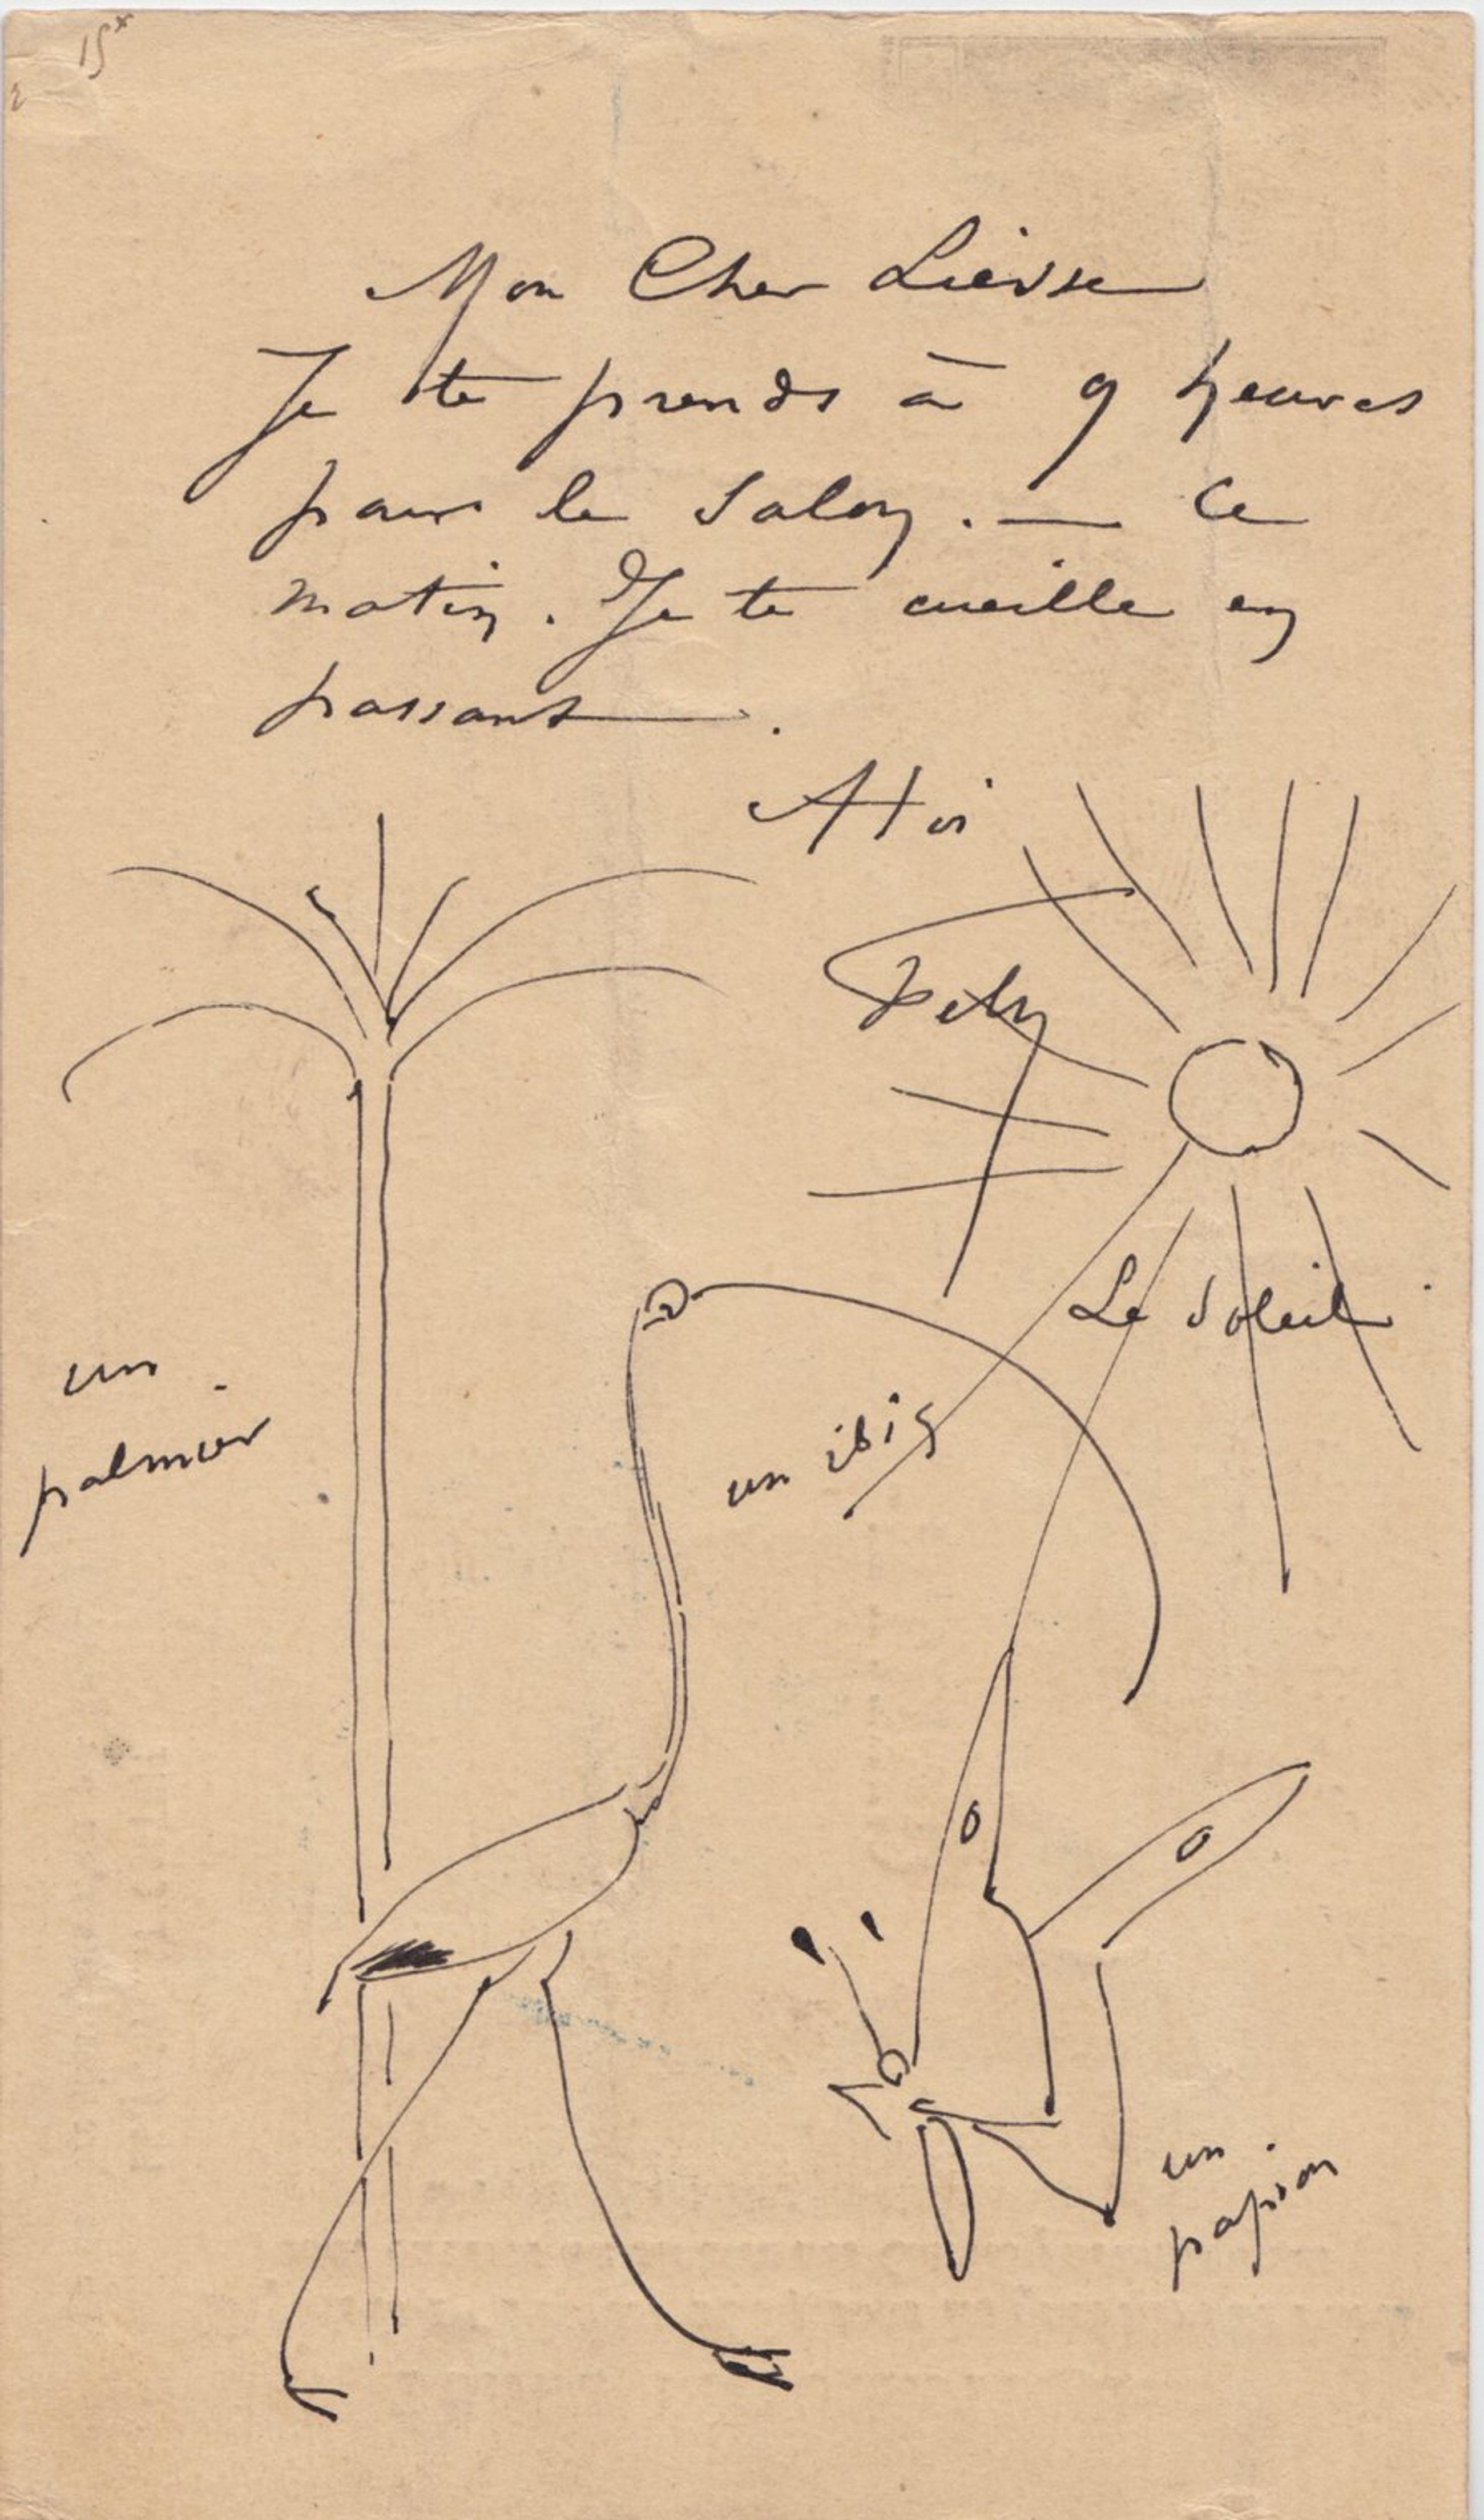 15
Mon Cher Liévse
Je te prends à 9 heures
pour le Salon. — Ce
matin. Je te cueille en
passant.
A toi
Le Soleil
un
palmier
un ibis
un
papion